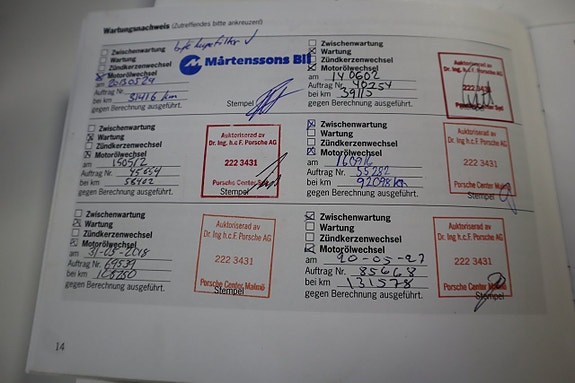 Wartungsnachweis (Zutreffendes bitte ankreuzen)
Zwischenwartung
Wartung
Zündkerzenwechsel
Motorölwechsel
am 20130524
Auftrag Nr.
bei km 31416 km
gegen Berechnung ausgeführt.
Mårtenssons Bil
Stempel
Zwischenwartung
Wartung
Zündkerzenwechsel
Motorölwechsel
am 140602
Auftrag Nr. 90254
bei km 39115
gegen Berechnung ausgeführt.
Auktoriserad av
Dr. Ing. h.c.F. Porsche AG
Zwischenwartung
Wartung
Zündkerzenwechsel
Motorölwechsel
am
Auftrag Nr. 45654
bei km 58402
gegen Berechnung ausgeführt.
Auktoriserad av
Dr. Ing h.c.F. Porsche AG
222 3431
Porsche Center
Stempel
Zwischenwartung
Wartung
Zündkerzenwechsel
Motorölwechsel
am
Auftrag Nr. 55282
bei km 92098 km
gegen Berechnung ausgeführt.
Auktoriserad av
Dr. Ing h.c.F. Porsche AG
222 3431
Porsche Center Malmö
Stempel
Zwischenwartung
Wartung
Zündkerzenwechsel
Motorölwechsel
am 31-05-2018
Auftrag Nr.
bei km
gegen Berechnung ausgeführt.
Auktoriserad av
Dr. Ing h.c.F. Porsche AG
222 3431
Porsche Center Malmö
Stempel
Zwischenwartung
Wartung
Zündkerzenwechsel
Motorölwechsel
am 20-05-27
Auftrag Nr. 85668
bei km 131578
gegen Berechnung ausgeführt.
Auktoriserad av
Dr. Ing h.c.F. Porsche AG
222 3431
Porsche Center Malmö
Stempel
14